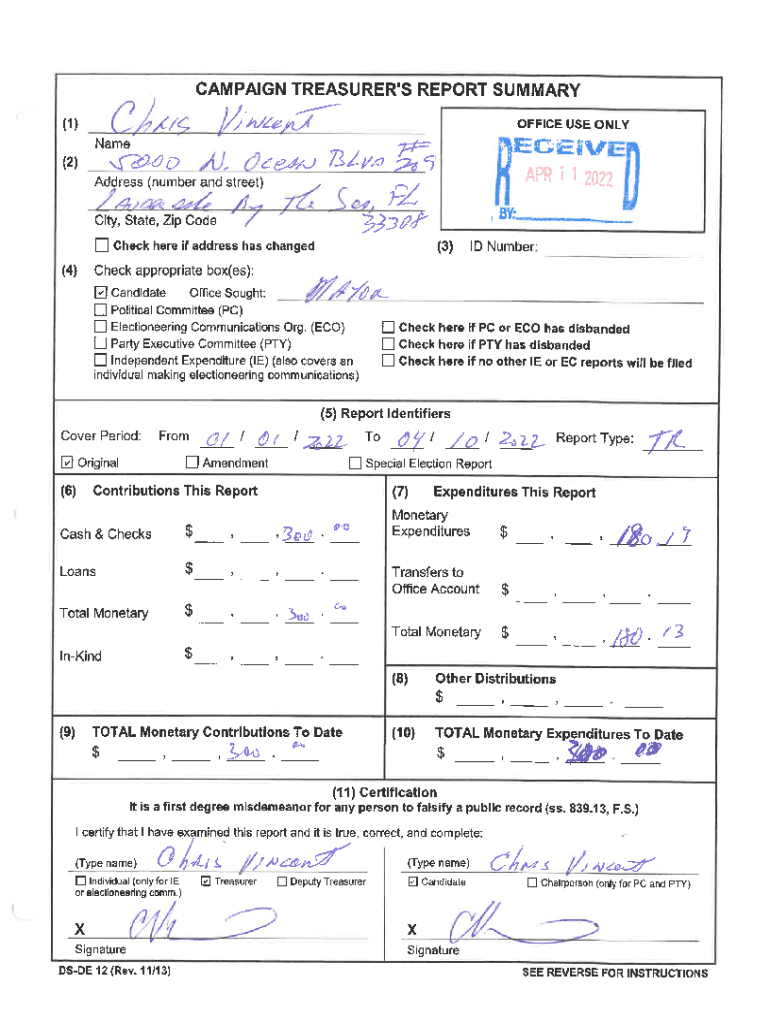 CAMPAIGN TREASURER'S REPORT SUMMARY
(1) Chris Vincent
Name
OFFICE USE ONLY
RECEIVED
APR 11 2022
BY:
(2) 5000 N. Ocean Blvd # 209
Address (number and street)
Lauderdale By The Sea, FL
33308
City, State, Zip Code
Check here if address has changed
(3) ID Number:
(4) Check appropriate box(es):
Candidate Office Sought: Mayor
Political Committee (PC)
Electioneering Communications Org. (ECO)
Party Executive Committee (PTY)
Independent Expenditure (IE) (also covers an
individual making electioneering communications)
Check here if PC or ECO has disbanded
Check here if PTY has disbanded
Check here if no other IE or EC reports will be filed
(5) Report Identifiers
Cover Period: From 01 / 01 / 2022 To 04 / 10 / 2022 Report Type: TR
Original Amendment Special Election Report
(6) Contributions This Report
Cash & Checks $ , ,300 . 00
Loans $ , , .
Total Monetary $ , , 300 . 00
In-Kind $ , , .
(7) Expenditures This Report
Monetary
Expenditures $ , , 180.
Transfers to
Office Account $ , , .
Total Monetary $ , , 180 . 13
(8) Other Distributions
$ , , .
(9) TOTAL Monetary Contributions To Date
$ , , 300 . 00
(10) TOTAL Monetary Expenditures To Date
$ , , 300 . 00
(11) Certification
It is a first degree misdemeanor for any person to falsify a public record (ss. 839.13, F.S.)
I certify that I have examined this report and it is true, correct, and complete:
(Type name) Chris Vincent
Individual (only for IE
or electioneering comm.) Treasurer Deputy Treasurer
X
Signature
(Type name) Chris Vincent
Candidate Chairperson (only for PC and PTY)
X
Signature
DS-DE 12 (Rev. 11/13)
SEE REVERSE FOR INSTRUCTIONS